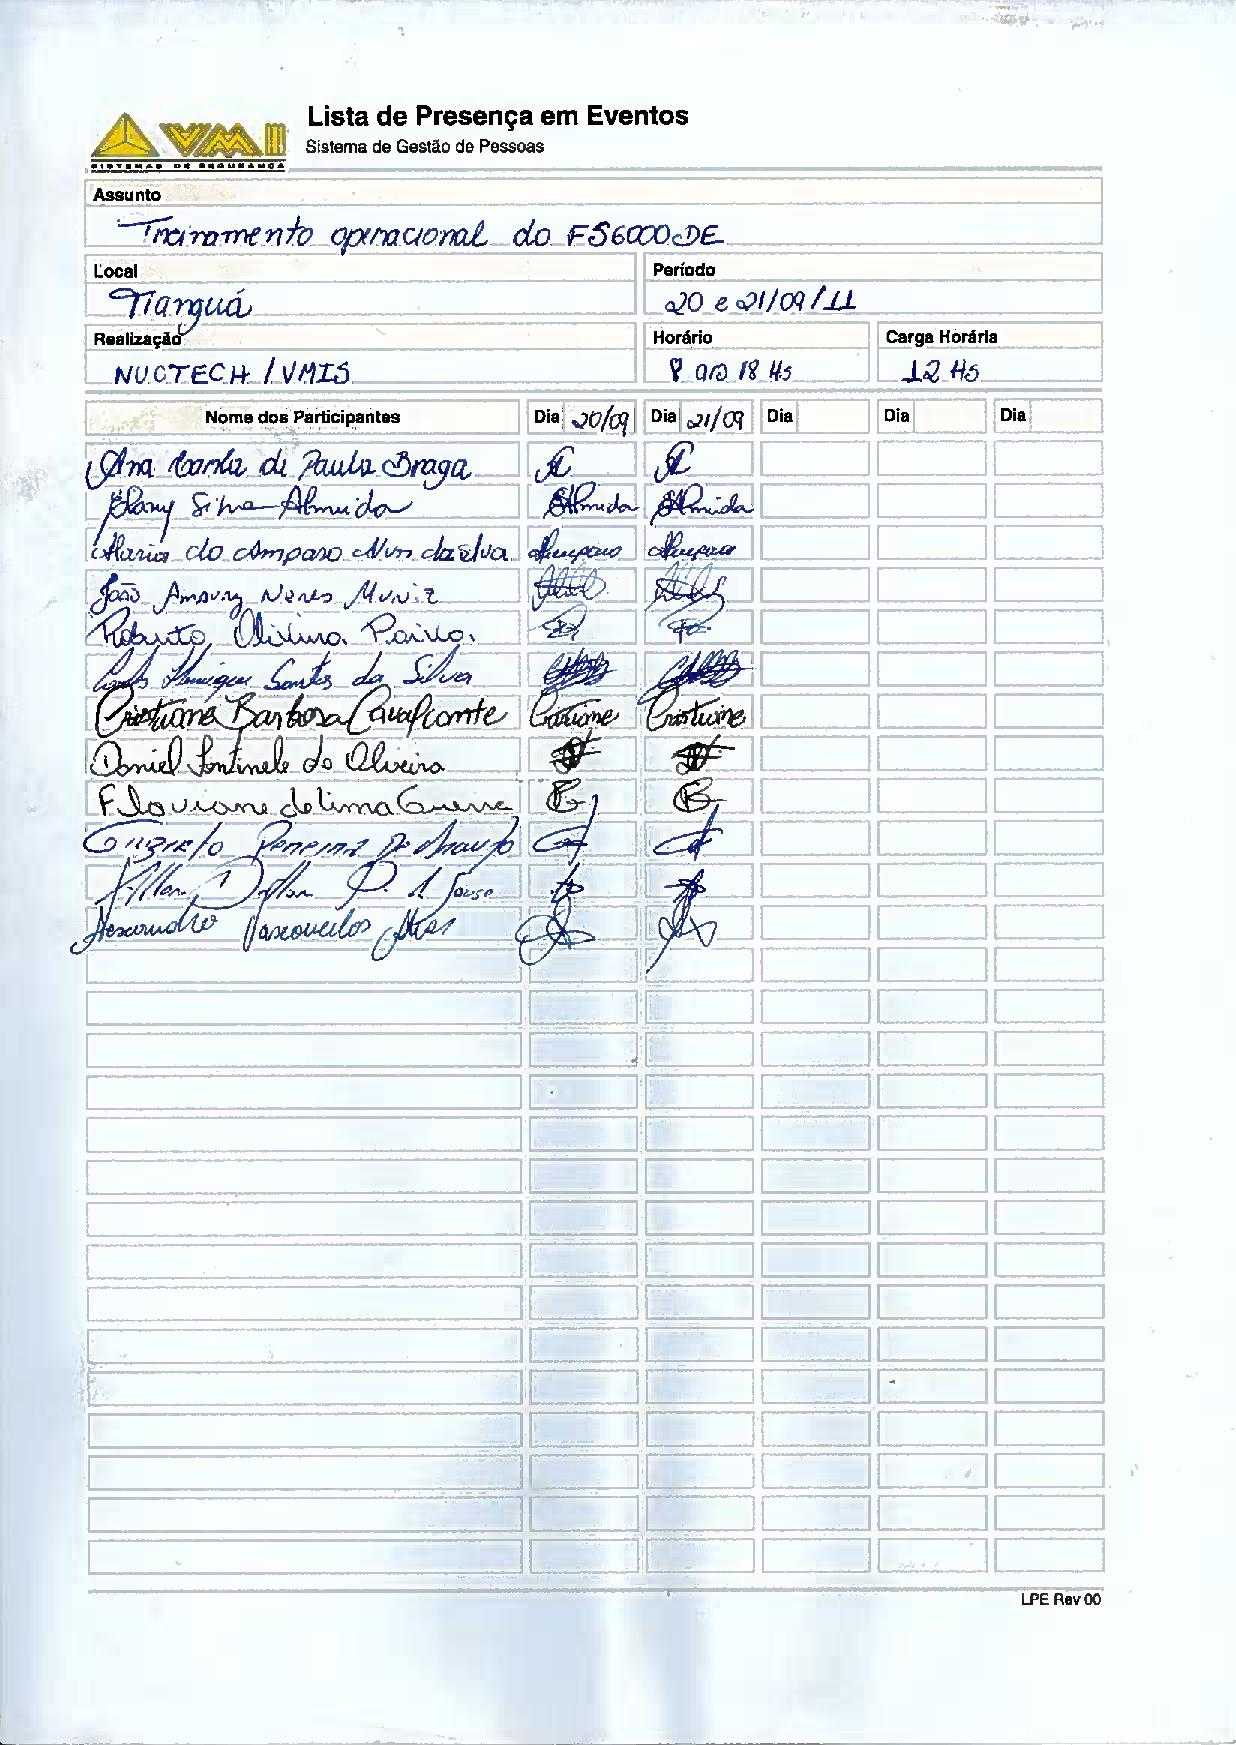 VMI
SISTEMAS DE SEGURANÇA
Lista de Presença em Eventos
Sistema de Gestão de Pessoas
Assunto
Treinamento operacional do FS6000DE
Local Período
Tianguá 20 e 21/09/11
Realização Horário Carga Horária
NUCTECH / VMIS 8 as 18 Hs 12 Hs
Nome dos Participantes Dia 20/09 Dia 21/09 Dia Dia Dia
Ana Carla de Paula Braga
Silva Almeida Almeida Almeida
Maria do Amparo da Silva Amparo Amparo
João Amaury Neres Muniz
Roberto Oliveira
Henrique Santos da Silva
Cristiane Barbosa Cavalcante Cristiane Cristiane
Daniel Fontinele de Oliveira
Flaviane de Lima Guerra
Pereira de Araujo
Sousa
Alexandre Vasconcelos
LPE Rev 00